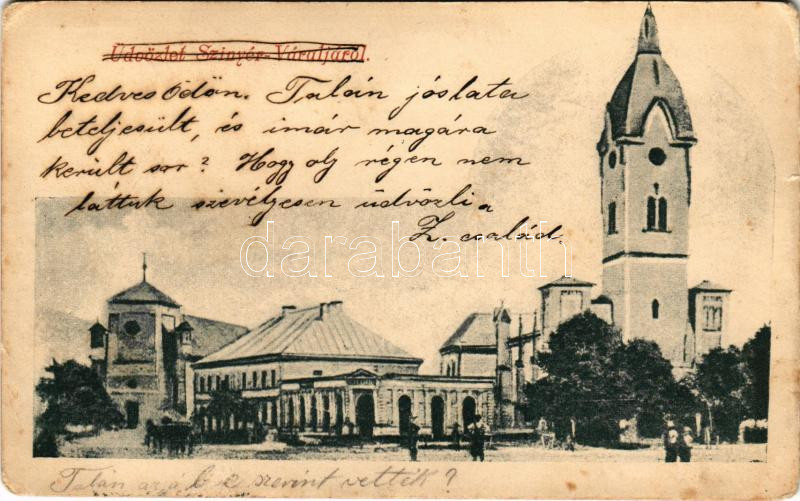 Üdvözlet Szinyér-Váraljáról.
Kedves Ödön. Talán jóslata
beteljesült, és imár magára
került sor? Hogy oly régen nem
láttuk szívélyesen üdvözli a
Z. család.
darabanth
Talán szerint vették?